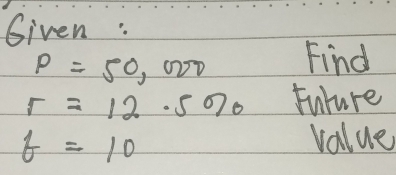 Given :
P = 50,000 Find
r = 12.5% Future
t = 10 Value